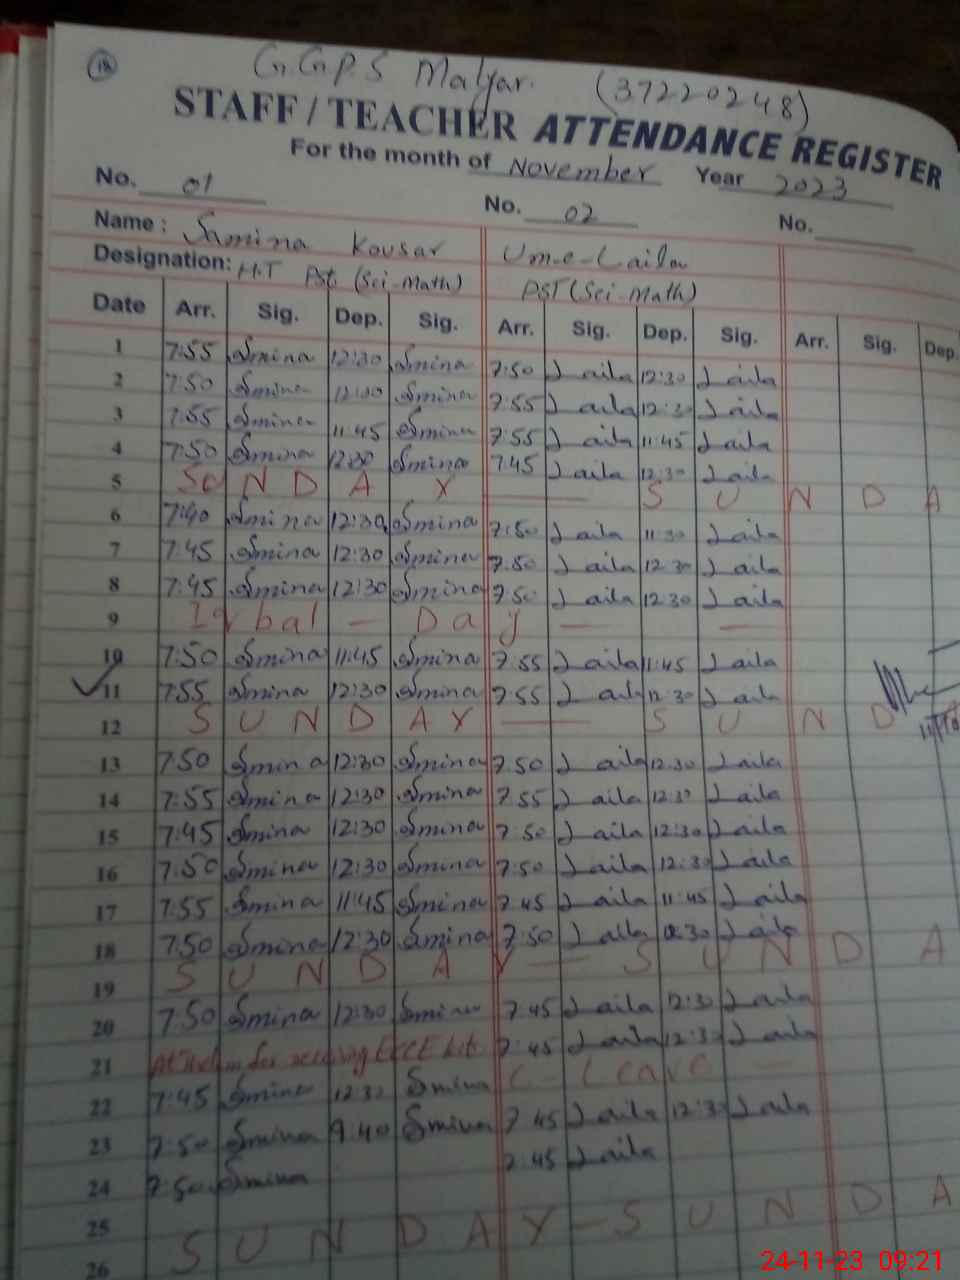 18
G.G.P.S Malyar. (37220248)
STAFF / TEACHER ATTENDANCE REGISTER
For the month of November Year 2023
No. 01 No. 02 No.
Name : Samina Kousar Um-e-Laila
Designation: H.T Pst (Sci-Math) PST (Sci-Math)
Date Arr. Sig. Dep. Sig. Arr. Sig. Dep. Sig. Arr. Sig. Dep.
1 7:55 Smina 12:30 Smina 7:50 Laila 12:30 Laila
2 7:50 Smina 12:30 Smina 7:55 Laila 12:30 Laila
3 7:55 Smina 11:45 Smina 7:55 Laila 11:45 Laila
4 7:50 Smina 12:30 Smina 7:45 Laila 12:30 Laila
5 SUNDAY — SUNDA
6 7:40 Smina 12:30 Smina 7:50 Laila 11:30 Laila
7 7:45 Smina 12:30 Smina 7:50 Laila 12:30 Laila
8 7:45 Smina 12:30 Smina 7:50 Laila 12:30 Laila
9 Iqbal - Day — —
10 7:50 Smina 11:45 Smina 7:55 Laila 11:45 Laila
11 7:55 Smina 12:30 Smina 7:55 Laila 12:30 Laila
12 SUNDAY — SUND
13 7:50 Smina 12:30 Smina 7:50 Laila 12:30 Laila
14 7:55 Smina 12:30 Smina 7:55 Laila 12:30 Laila
15 7:45 Smina 12:30 Smina 7:50 Laila 12:30 Laila
16 7:50 Smina 12:30 Smina 7:50 Laila 12:30 Laila
17 7:55 Smina 11:45 Smina 7:45 Laila 11:45 Laila
18 7:50 Smina 12:30 Smina 7:50 Laila 12:30 Laila
19 SUNDAY — SUNDA
20 7:50 Smina 12:30 Smina 7:45 Laila 12:30 Laila
21 for receiving ECCE kit 7:45 Laila 12:30 Laila
22 7:45 Smina 12:30 Smina C - Leave —
23 7:50 Smina 9:40 Smina 7:45 Laila 12:30 Laila
24 7:50 Smina 7:45 Laila
25
26 SUNDAY - SUNDA
24-11-23 09:21